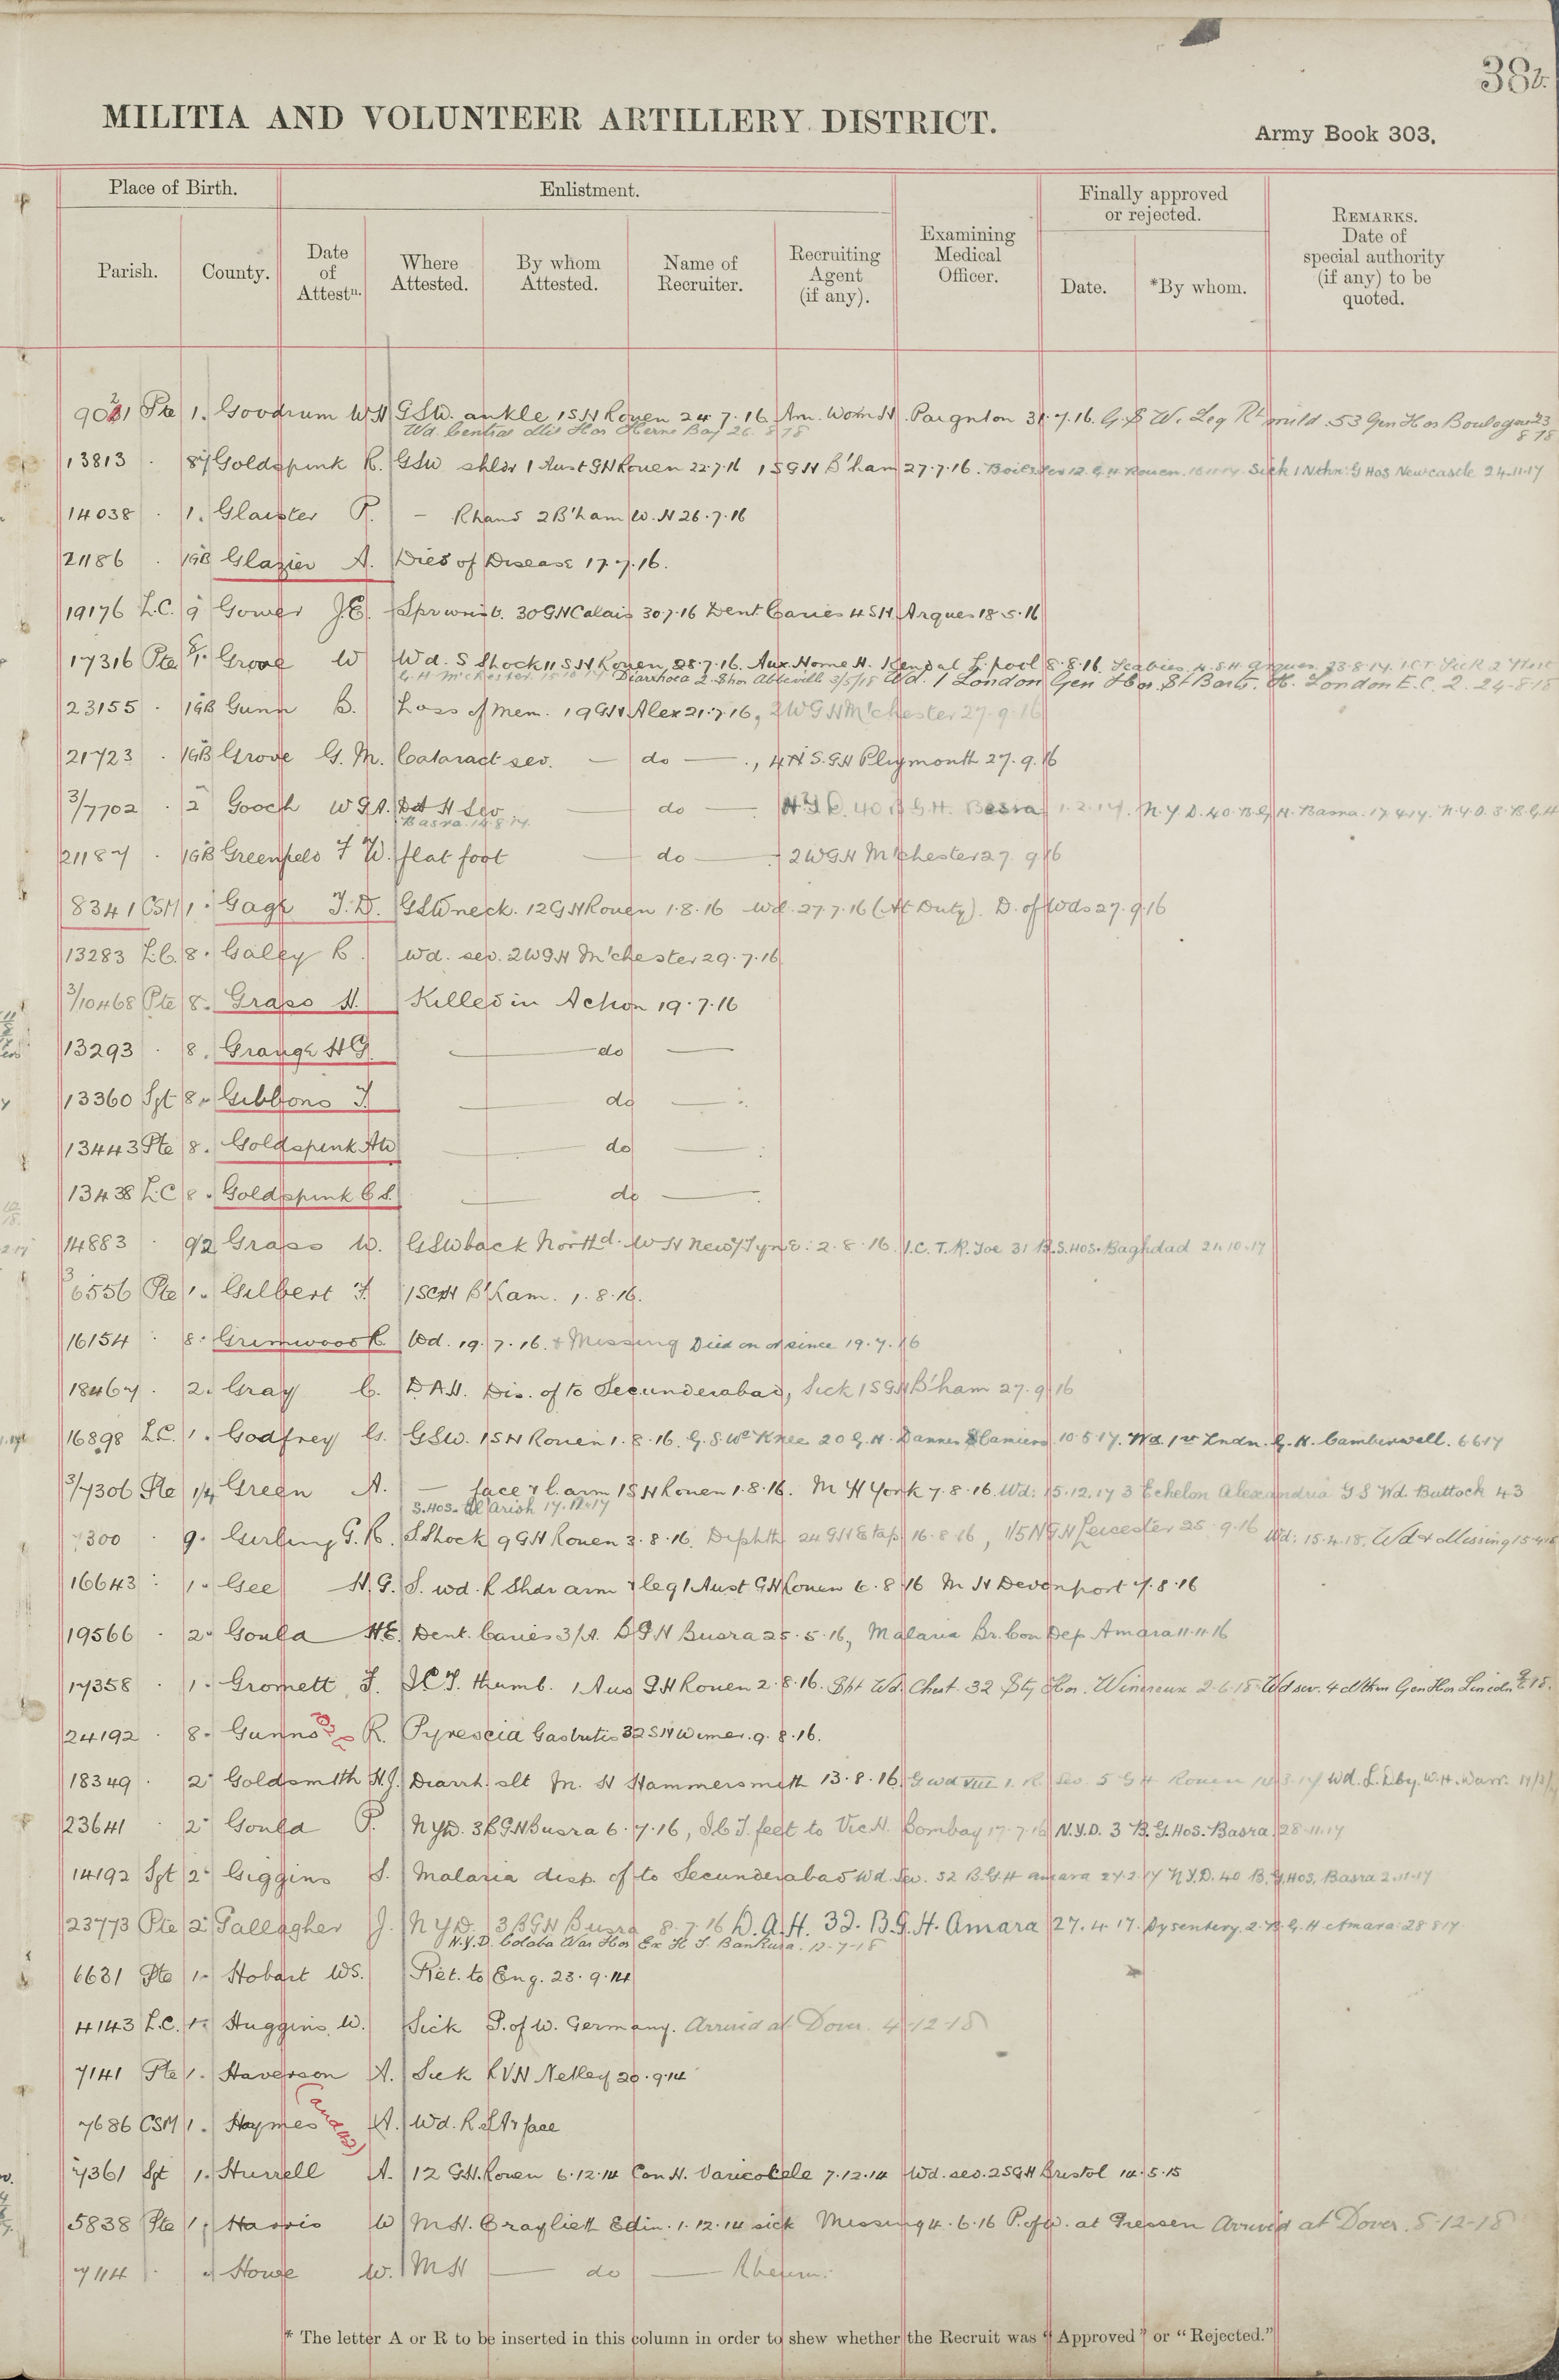 38b.
MILITIA AND VOLUNTEER ARTILLERY DISTRICT.
Army Book 303.
Place of Birth. Enlistment. Examining Medical Officer. Finally approved or rejected. REMARKS. Date of special authority (if any) to be quoted.
Parish. County. Date of Attestn. Where Attested. By whom Attested. Name of Recruiter. Recruiting Agent (if any). Date. *By whom.
9021 Pte 1. Goodrum WH GSW. ankle 1 S H Rouen 24.7.16 Am. Wom H. Paignton 31.7.16. G.S W. Leg Rt mild. 53 Gen Hos Boulogne 23 8 18
Wd. Central Mil Hos Herne Bay 26.8.18
13813 . 8/7 Goldspink R. GSW shldr 1 Aust GH Rouen 22.7.16 1 SGH B'ham 27.7.16. Boils Sick 1 Nthn: G Hos Newcastle 24-11-17
14038 . 1. Glaister P. - Rhand 2 B'ham W.H 26.7.16
21186 . 1GB Glazier A. Died of Disease 17.7.16.
19176 L.C. 9 Gower J.E. Spr wrist. 30 GH Calais 30.7.16 Dent. Caries 4 SH Arques 18.5.16
17316 Pte 8/1. Grove W Wd. S Shock 11 SH Rouen, 28.7.16. Aux. Home H. Kendal L'pool 8.8.16. Scabies. 4.S.H. Arques. 23.8.17. I.C.T. Sick 2 West
G.H M'chester. 15.10.17 Diarrhoea 2 S hos Abbeville 3/5/18 Wd. 1 London Gen Hos. St Barts. H. London E.C. 2. 24-8-18
23155 . 1GB Gunn B. Loss of Mem. 19 GH Alex 21.7.16, 2 W G H M'chester 27-9-16
21723 . 1GB Grove G. M. Cataract sev. — do — ., 4th S.GH Plymouth 27.9.16
3/7702 . 2 Gooch W G A. DAH Sev — do — N.Y.D. 40 B.G.H. Basra 1.2.17. N.Y.D. 40. B.G.H. Basra. 17.4.17. N.Y.D. 3. B.G.H
Basra. 14.8.17.
21187 . 1GB Greenfield F W. flat foot — do — 2 WGH M'chester 27.9.16
8341 CSM 1. Gage T. D. GSW neck. 12 GH Rouen 1.8.16 Wd. 27.7.16 (At Duty). D. of Wds 27.9.16
13283 L.C. 8. Galey R. Wd. sev. 2WGH M'chester 29.7.16
3/10468 Pte 8. Grass H. Killed in Action 19.7.16
13293 . 8. Grange HG — do —
13360 Sgt 8. Gibbons F. — do —
13443 Pte 8. Goldspink AW — do —
13438 L.C 8. Goldspink C S. — do —
14883 . 9/2 Grass W. GSW back Northd. W H New/Tyne: 2.8.16. I.C.T. R. Toe 31 B.S.HOS. Baghdad 21.10.17
3/6556 Pte 1. Gilbert F. 1 SGH B'ham. 1.8.16.
16154 . 8. Grimwood R. Wd. 19.7.16. & Missing Died on or since 19.7.16
18467 . 2. Gray C. D.A.H. Dis. of to Secunderabad, Sick 1 SGH B'ham 27.9.16
16898 L.C. 1. Godfrey G. GSW. 1SH Rouen 1.8.16. G.S.Wd Knee 20 G.H. Dannes Camiers 10.5.17. Wd 1st Lndn. G.H. Camberwell. 6.6.17
3/7306 Pte 1/4 Green A. — face & l. arm 1SH Rouen 1.8.16. M H York 7.8.16. Wd: 15.12.17 3 Echelon Alexandria G S Wd. Buttock 43
S.HOS. El Arish 17.12.17
7300 . 9. Gurling G. R. S.Shock 9 GH Rouen 3.8.16. Diphth 24 GH Etap. 16.8.16, 1/5 N GH Leicester 25.9.16 Wd: 15.4.18. Wd & Missing 15.4.18
16643 . 1. Gee H.G. S. wd. R Shdr arm & leg 1 Aust GH Rouen 6.8.16 M H Devonport 7.8.16
19566 . 2. Gould H.E. Dent. Caries 3/A. B G H Busra 25.5.16, Malaria Br. Con Dep Amara 11.11.16
17358 . 1. Gromett F. I.C.T. thumb. 1 Aus GH Rouen 2.8.16. Sht Wd. Chest. 32 Sty Hos. Wimereux 2-6-18. Wd sev. 4 Nthn Gen Hos Lincoln 9.6.18.
24192 . 8. Gunns R. Pyrescia Gastritis 32 SH Wimer. 9.8.16.
18349 . 2. Goldsmith H.J. Diarrh. slt M. H Hammersmith 13.8.16. G wd VIII 1. R. Sev. 5 G H Rouen Wd. L. Lby. W.H. Warr.
23641 . 2. Gould P. NYD. 3 B GH Busra 6.7.16, I.C.T. feet to Vic H. Bombay 17.7.16 N.Y.D. 3 B.G.HOS. Basra. 28-11-17
14192 Sgt 2. Giggins S. Malaria disp. of to Secunderabad Wd. Sev. 32 B.G.H Amara 27.2.17 N.Y.D. 40 B.G.HOS. Basra 2.11.17
23773 Pte 2. Gallagher J. N Y D. 3 B GH Busra 8.7.16 D.A.H. 32. B.G.H. Amara 27.4.17. Dysentery. 2. B.G.H Amara. 28.8.17.
N.Y.D. Colaba War Hos Ex H.S. Bankura. 12-7-18
6631 Pte 1. Hobart WS. Ret. to Eng. 23.9.14
4143 L.C. 1. Huggins. W. Sick P. of W. Germany. Arrived at Dover. 4-12-18
7141 Pte 1. Haverson A. Sick R V H Netley 20.9.14
7686 CSM 1. Haymes A. Wd. R. & face
7361 Sgt 1. Hurrell A. 12 G.H. Rouen 6.12.14 Con H. Varicocele 7.12.14 Wd. sev. 2 SGH Bristol 14.5.15
5838 Pte 1. Harris W M H. Craglieth Edin. 1.12.14 sick Missing 4.6.16 P. of W. at Giessen Arrived at Dover. 8-12-18
7114 . Howe W. M H — do — Rheum.
* The letter A or R to be inserted in this column in order to shew whether the Recruit was “Approved” or “Rejected.”